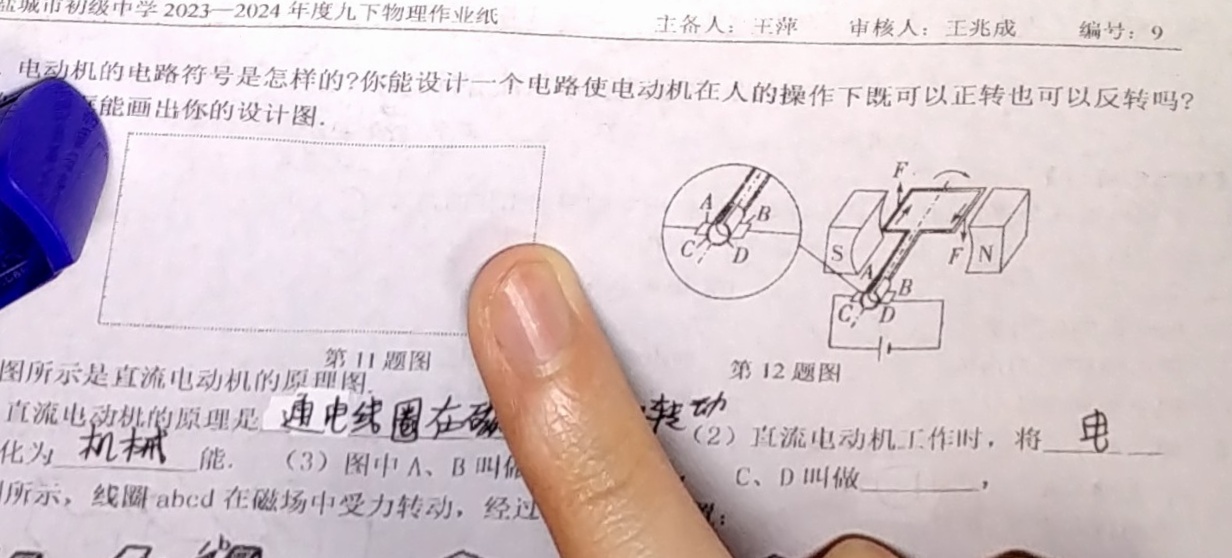 盐城市初级中学 2023—2024 年度九下物理作业纸
主备人：王萍 审核人：王兆成 编号：9
电动机的电路符号是怎样的?你能设计一个电路使电动机在人的操作下既可以正转也可以反转吗?
能画出你的设计图.
A B C D
F F S N
A B C D
第 11 题图
第 12 题图
图所示是直流电动机的原理图.
直流电动机的原理是 通电线圈在磁 转动 (2) 直流电动机工作时，将 电
化为 机械 能. (3) 图中 A、B 叫做 ， C、D 叫做 ，
所示，线圈 abcd 在磁场中受力转动，经过